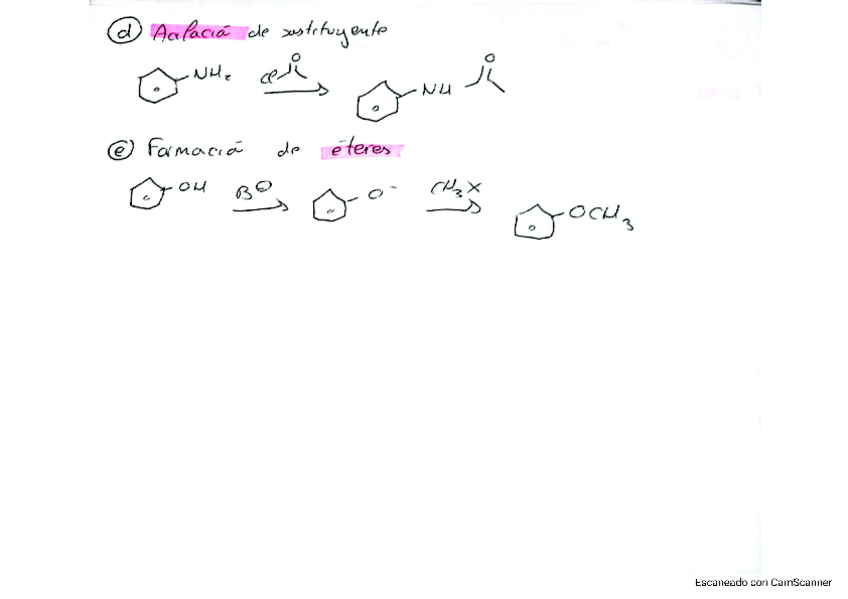 d Acilació de sustituyente
NH₂ Cl O NH O
e Formació de éteres
OH B⊖ O⁻ CH₃X OCH₃
Escaneado con CamScanner